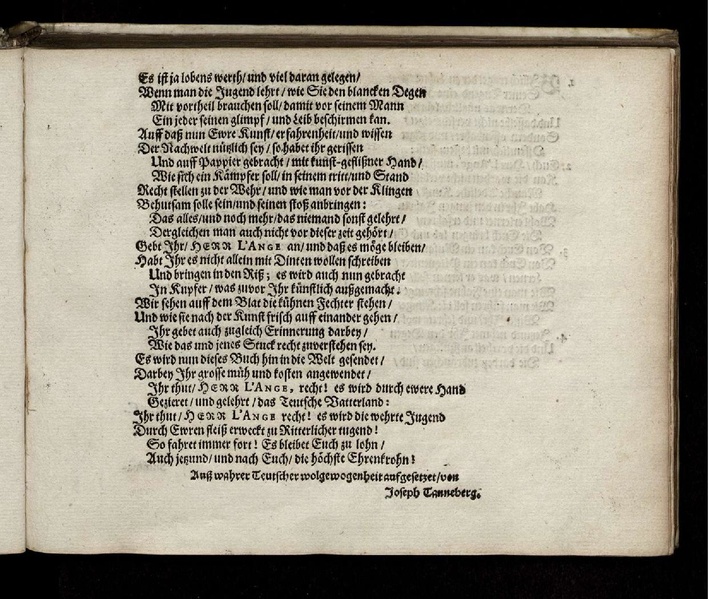 Es ist ja lobens werth/ und viel daran gelegen/
Wenn man die Jugend lehrt/ wie Sie den blancken Degen
Mit vortheil brauchen soll/ damit vor seinem Mann
Ein jeder seinen glimpf/ und Leib beschirmen kan.
Auff daß nun Ewre Kunst/ erfahrenheit/ und wissen
Der Nachwelt nützlich sey/ so habet ihr gerissen
Und auff Pappier gebracht/ mit kunst-geflißner Hand/
Wie sich ein Kämpfer soll/ in seinem tritt/ und Stand
Recht stellen zu der Wehr/ und wie man vor der Klingen
Behutsam solle sein/ und seinen stoß anbringen:
Das alles/ und noch mehr/ das niemand sonst gelehrt/
Dergleichen man auch nicht vor dieser zeit gehört/
Gebt Ihr/ HERR L'ANGE an/ und daß es möge bleiben/
Habt Ihr es nicht allein mit Dinten wollen schreiben
Und bringen in den Riß; es wird auch nun gebracht
In Kupfer/ was zuvor Ihr künstlich außgemacht.
Wir sehen auff dem Blat die kühnen Fechter stehen/
Und wie sie nach der Kunst frisch auff einander gehen/
Ihr gebet auch zugleich Erinnerung darbey/
Wie das und jenes Stuck recht zuverstehen sey.
Es wird nun dieses Buch hin in die Welt gesendet/
Darbey Ihr grosse müh und kosten angewendet/
Ihr thut/ HERR L'ANGE, recht! es wird durch ewere Hand
Gezieret/ und gelehrt/ das Teutsche Vatterland:
Ihr thut/ HERR L'ANGE recht! es wird die wehrte Jugend
Durch Ewren fleiß erweckt zu Ritterlicher tugend!
So fahret immer fort! Es bleibet Euch zu lohn/
Auch jetzund/ und nach Euch/ die höchste Ehrenkrohn!
Auß wahrer Teutscher wolgewogenheit auffgesetzet/ von
Joseph Tanneberg.